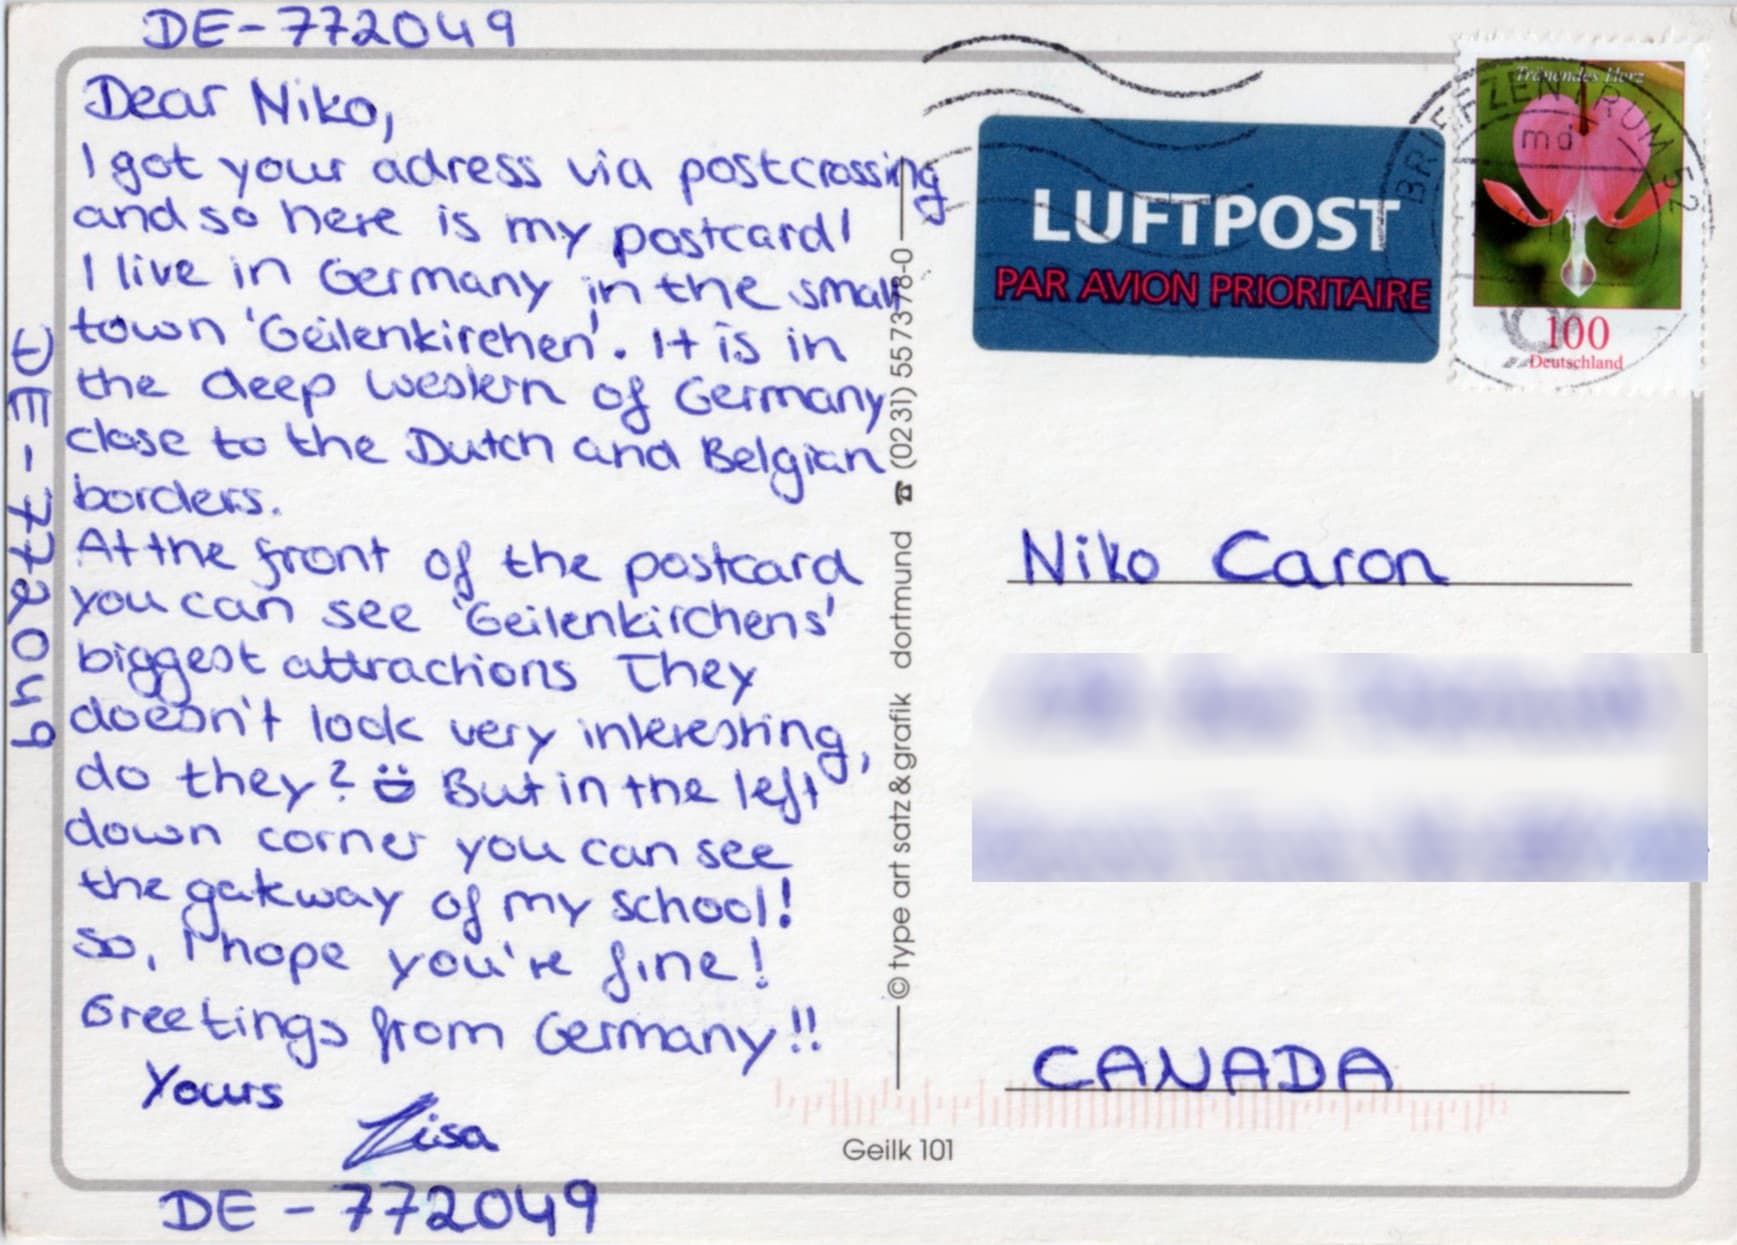 DE-772049
Dear Niko,
I got your adress via postcrossing
and so here is my postcard!
I live in Germany in the small
town 'Geilenkirchen'. It is in
the deep western of Germany
close to the Dutch and Belgian
borders.
At the front of the postcard
you can see 'Geilenkirchens'
biggest attractions They
doesn't look very interesting,
do they? But in the left
down corner you can see
the gateway of my school!
So, I hope you're fine!
Greetings from Germany!!
Yours
Lisa
DE-772049
DE-772049
© type art satz & grafik dortmund ☎ (0231) 557378-0
LUFTPOST
PAR AVION PRIORITAIRE
Tränendes Herz
100
Deutschland
BRIEFZENTRUM 52
md
Niko Caron
CANADA
Geilk 101